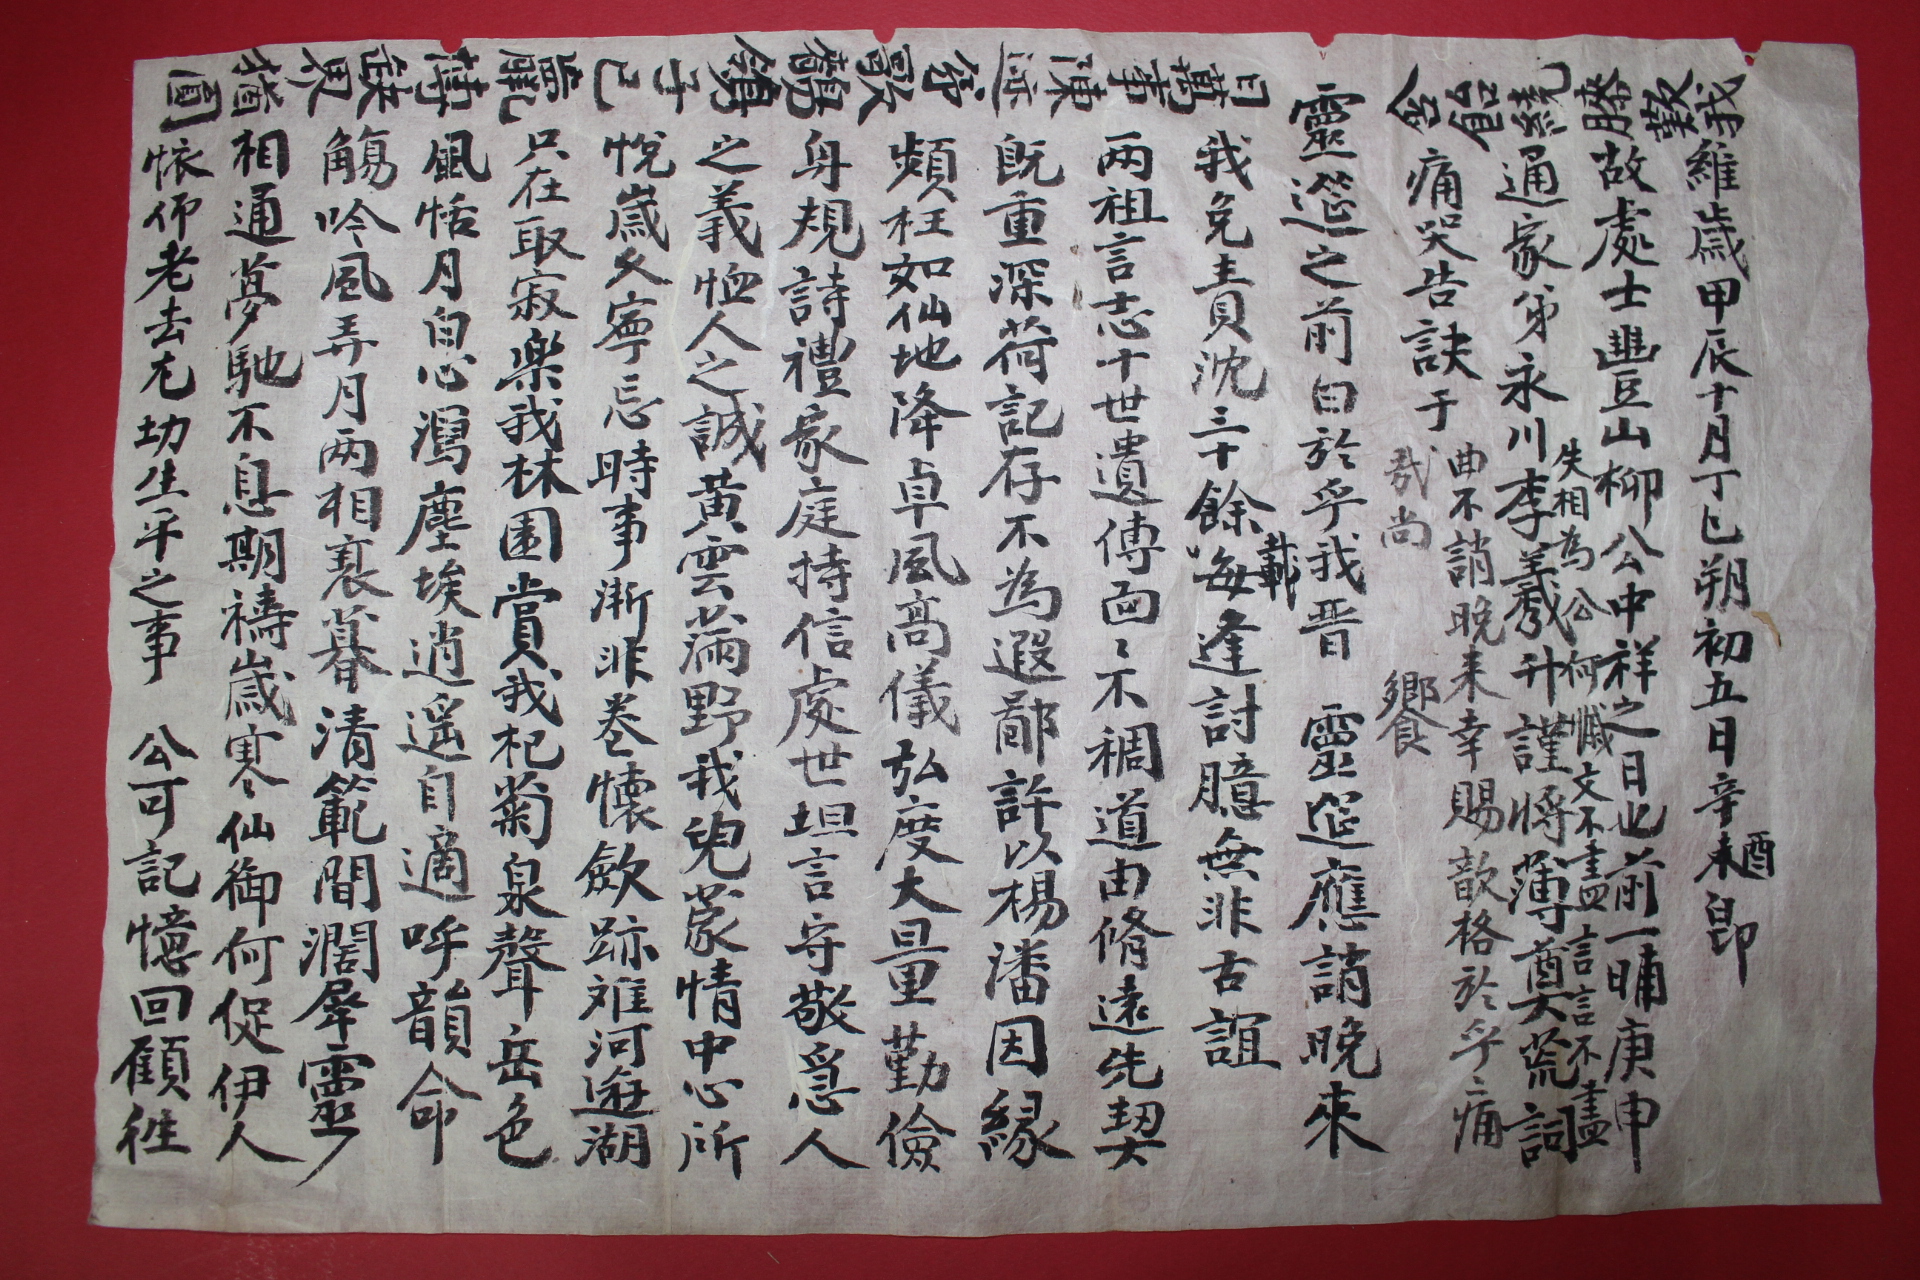 維歲甲辰十月丁巳朔初五日辛未酉卽
故處士豊山柳公中祥之日也前一晡庚申
失相為公何憾文不盡言言不盡
通家弟永川李羲升謹將薄奠荒詞
曲不誚晚来幸賜歆格於乎〻痛
痛哭告訣于
哉尚 饗
靈筵之前曰於乎我晋 靈筵應誚晚來
我免責沈三十餘載每逢討臆無非古誼
两祖言志十世遺傳面〻不稠道由脩遠先契
既重深荷記存不為遐鄙許以楊潘因緣
頻枉如仙地降卓風高儀弘度大量勤儉
身規詩禮家庭持信處世坦言守敬爲人
之義恤人之誠黃雲满野我貌蒙情中心所
悅歲久寧忘時事漸非卷懷斂跡难河遊湖
只在取寂樂我林園賞我杞菊泉聲岳色
風恬月白心瀉塵埃逍遥自適呼韻命
觴吟風弄月两相衰暮清範間濶犀靈
相通夢馳不息期禱歲寒仙御何促伊人
懷仰老去尤切生平之事 公可記憶回顧往